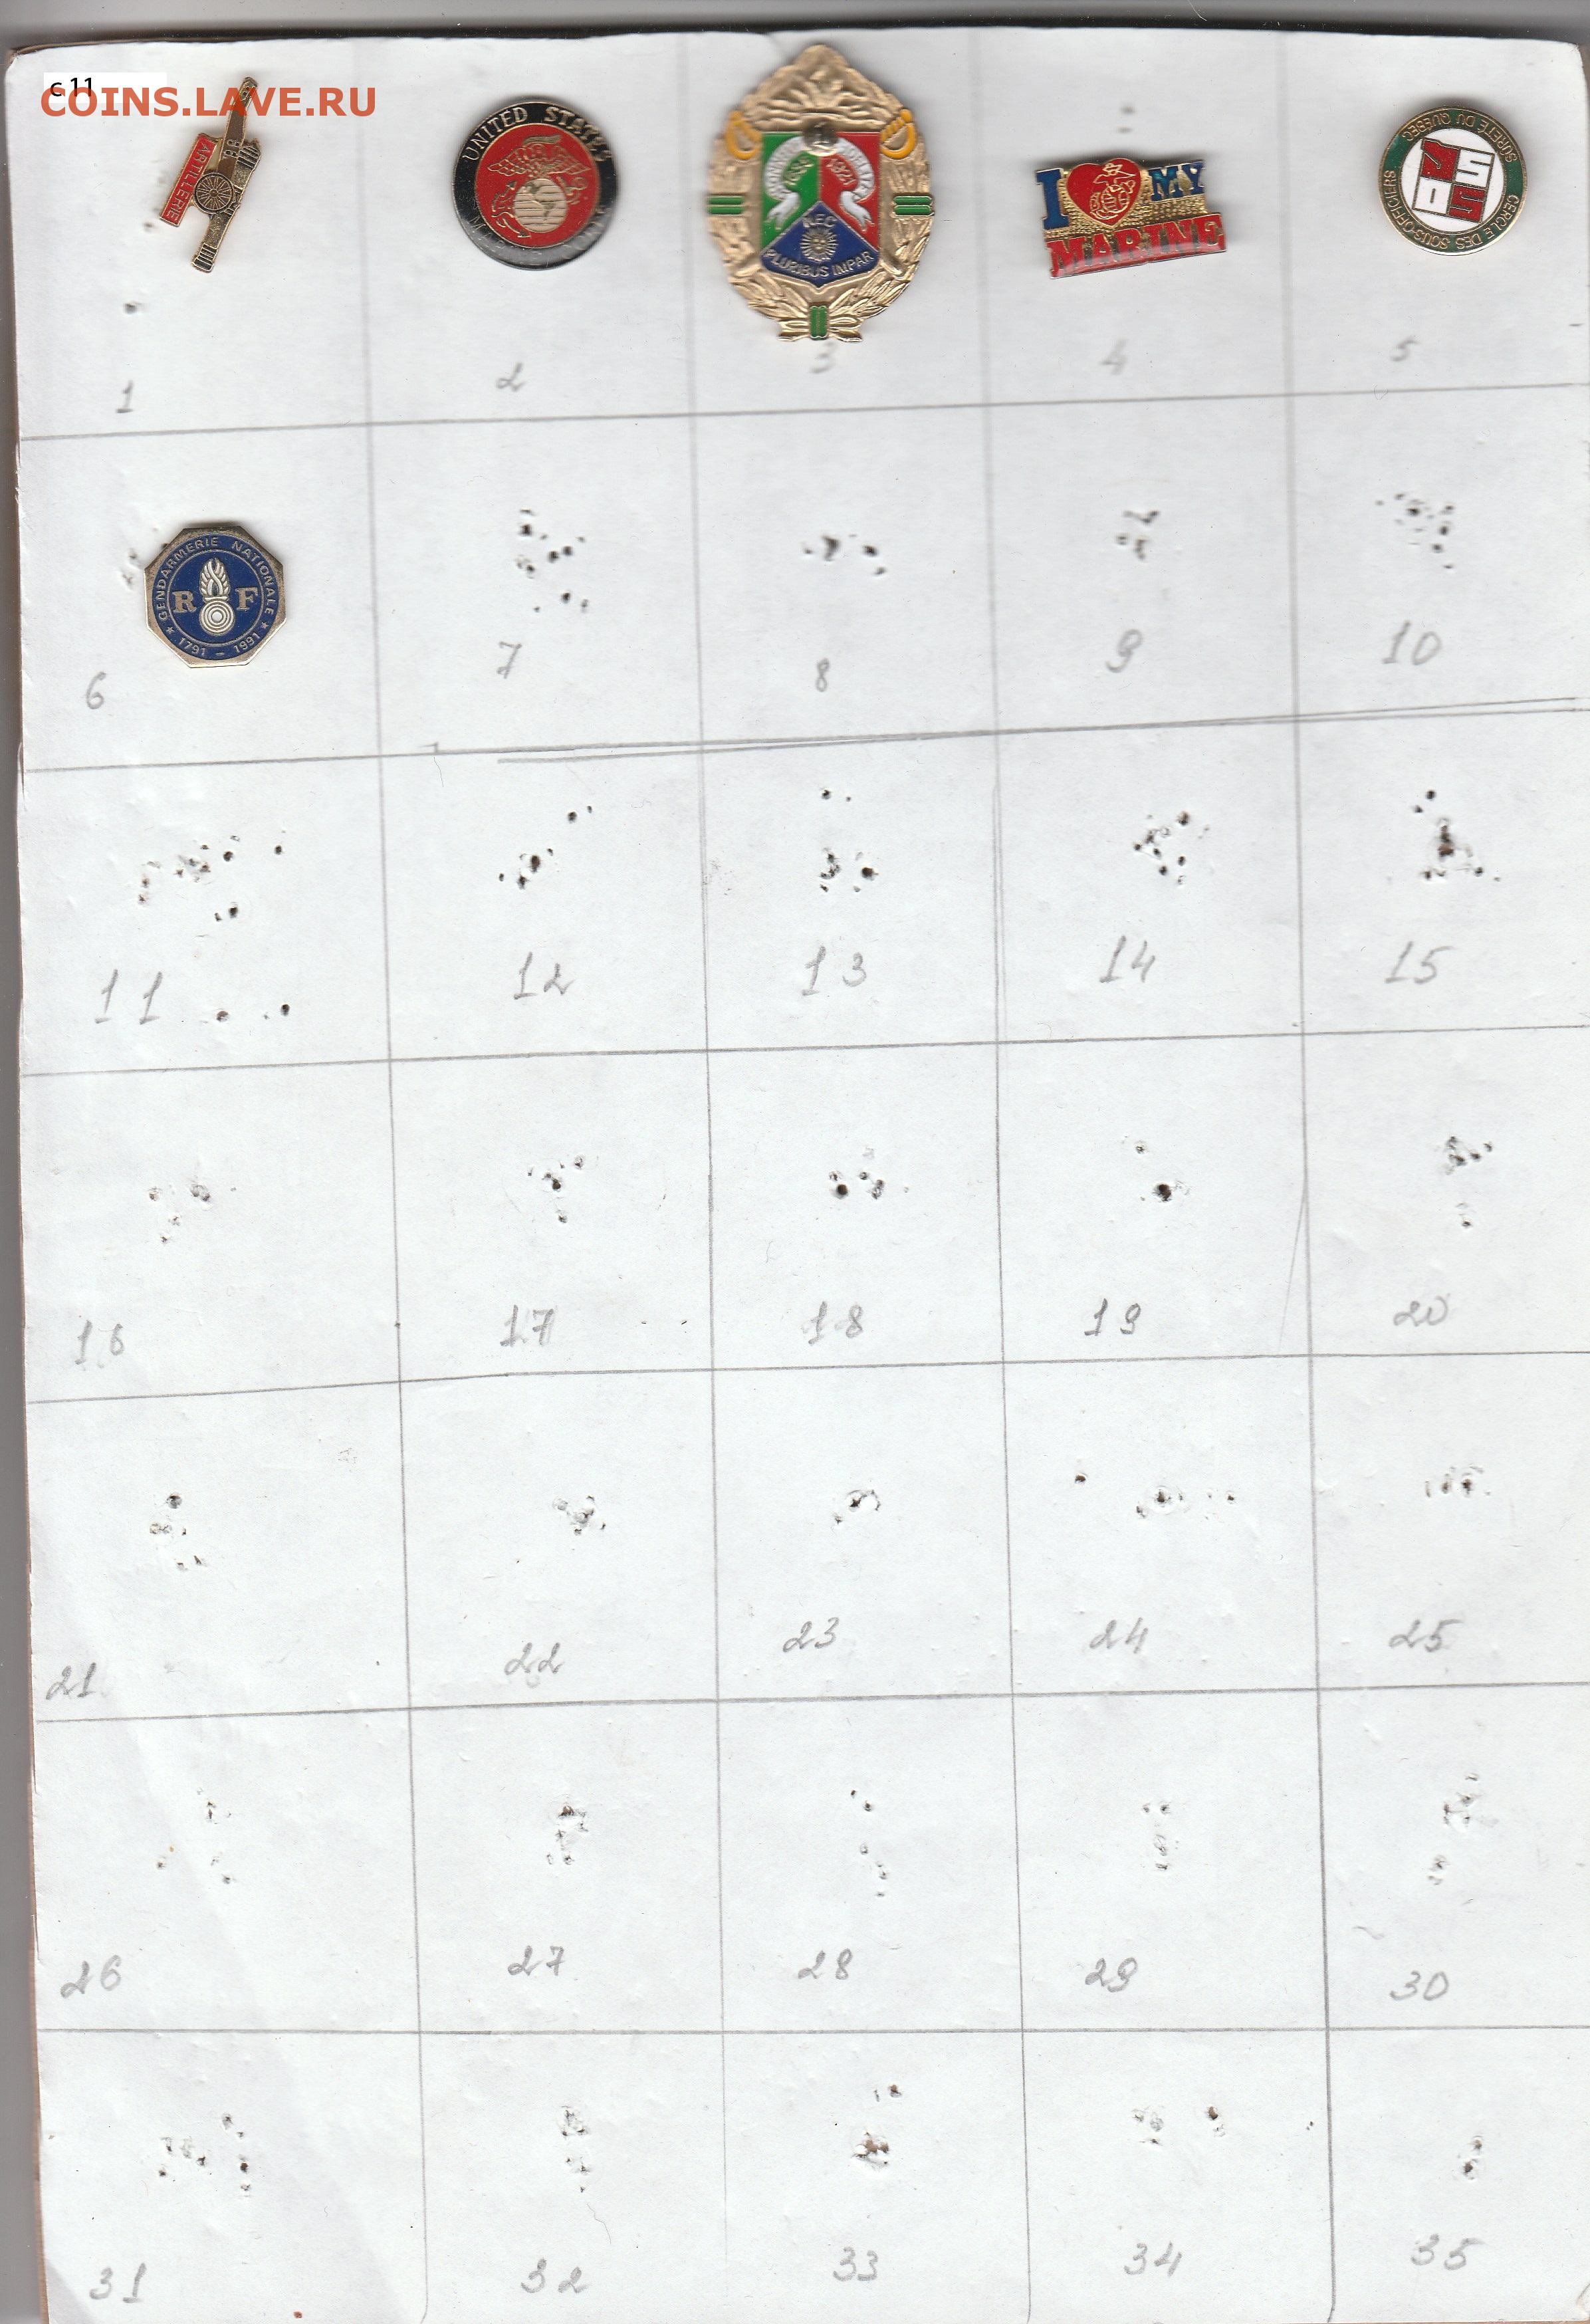 c 11
COINS.LAVE.RU
ARTILLERIE
UNITED STATES
1921
KEC
PLURIBUS IMPAR
I MY
MARINE
SÛRETÉ DU QUÉBEC
CERCLE DES SOUS-OFFICIERS
1 2 3 4 5
GENDARMERIE NATIONALE
R F
1791 - 1991
6 7 8 9 10
11 12 13 14 15
16 17 18 19 20
21 22 23 24 25
26 27 28 29 30
31 32 33 34 35